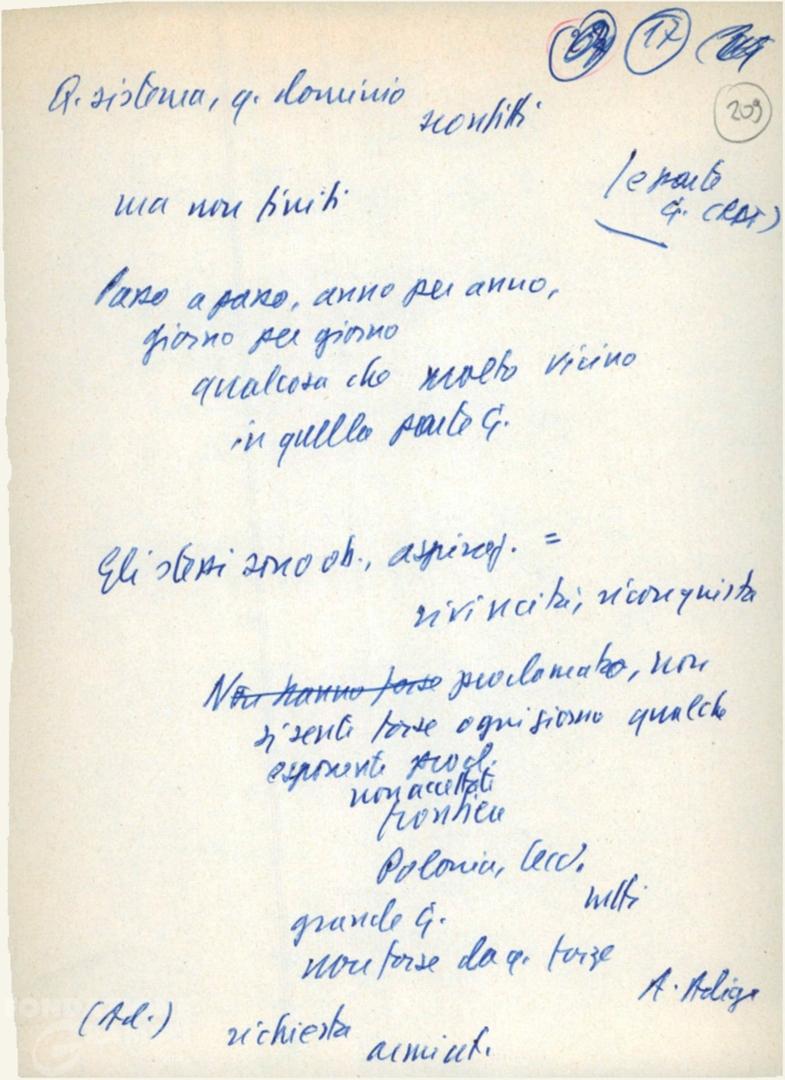 17
209
Q. sistema, q. dominio
sconfitti
ma non finiti
(e parte
G. (RFT)
Passo a passo, anno per anno,
giorno per giorno
qualcosa che molto vicino
in quella parte G.
Gli stessi sono ob., aspiraz. =
rivincita, riconquista
Non hanno forse proclamato, non
si sente forse ogni giorno qualche
esponente procl.
non accettati
frontiere
Polonia, Cec.
tutti
grande G.
non forse da q. forze
A. Adige
(Ad.)
richiesta